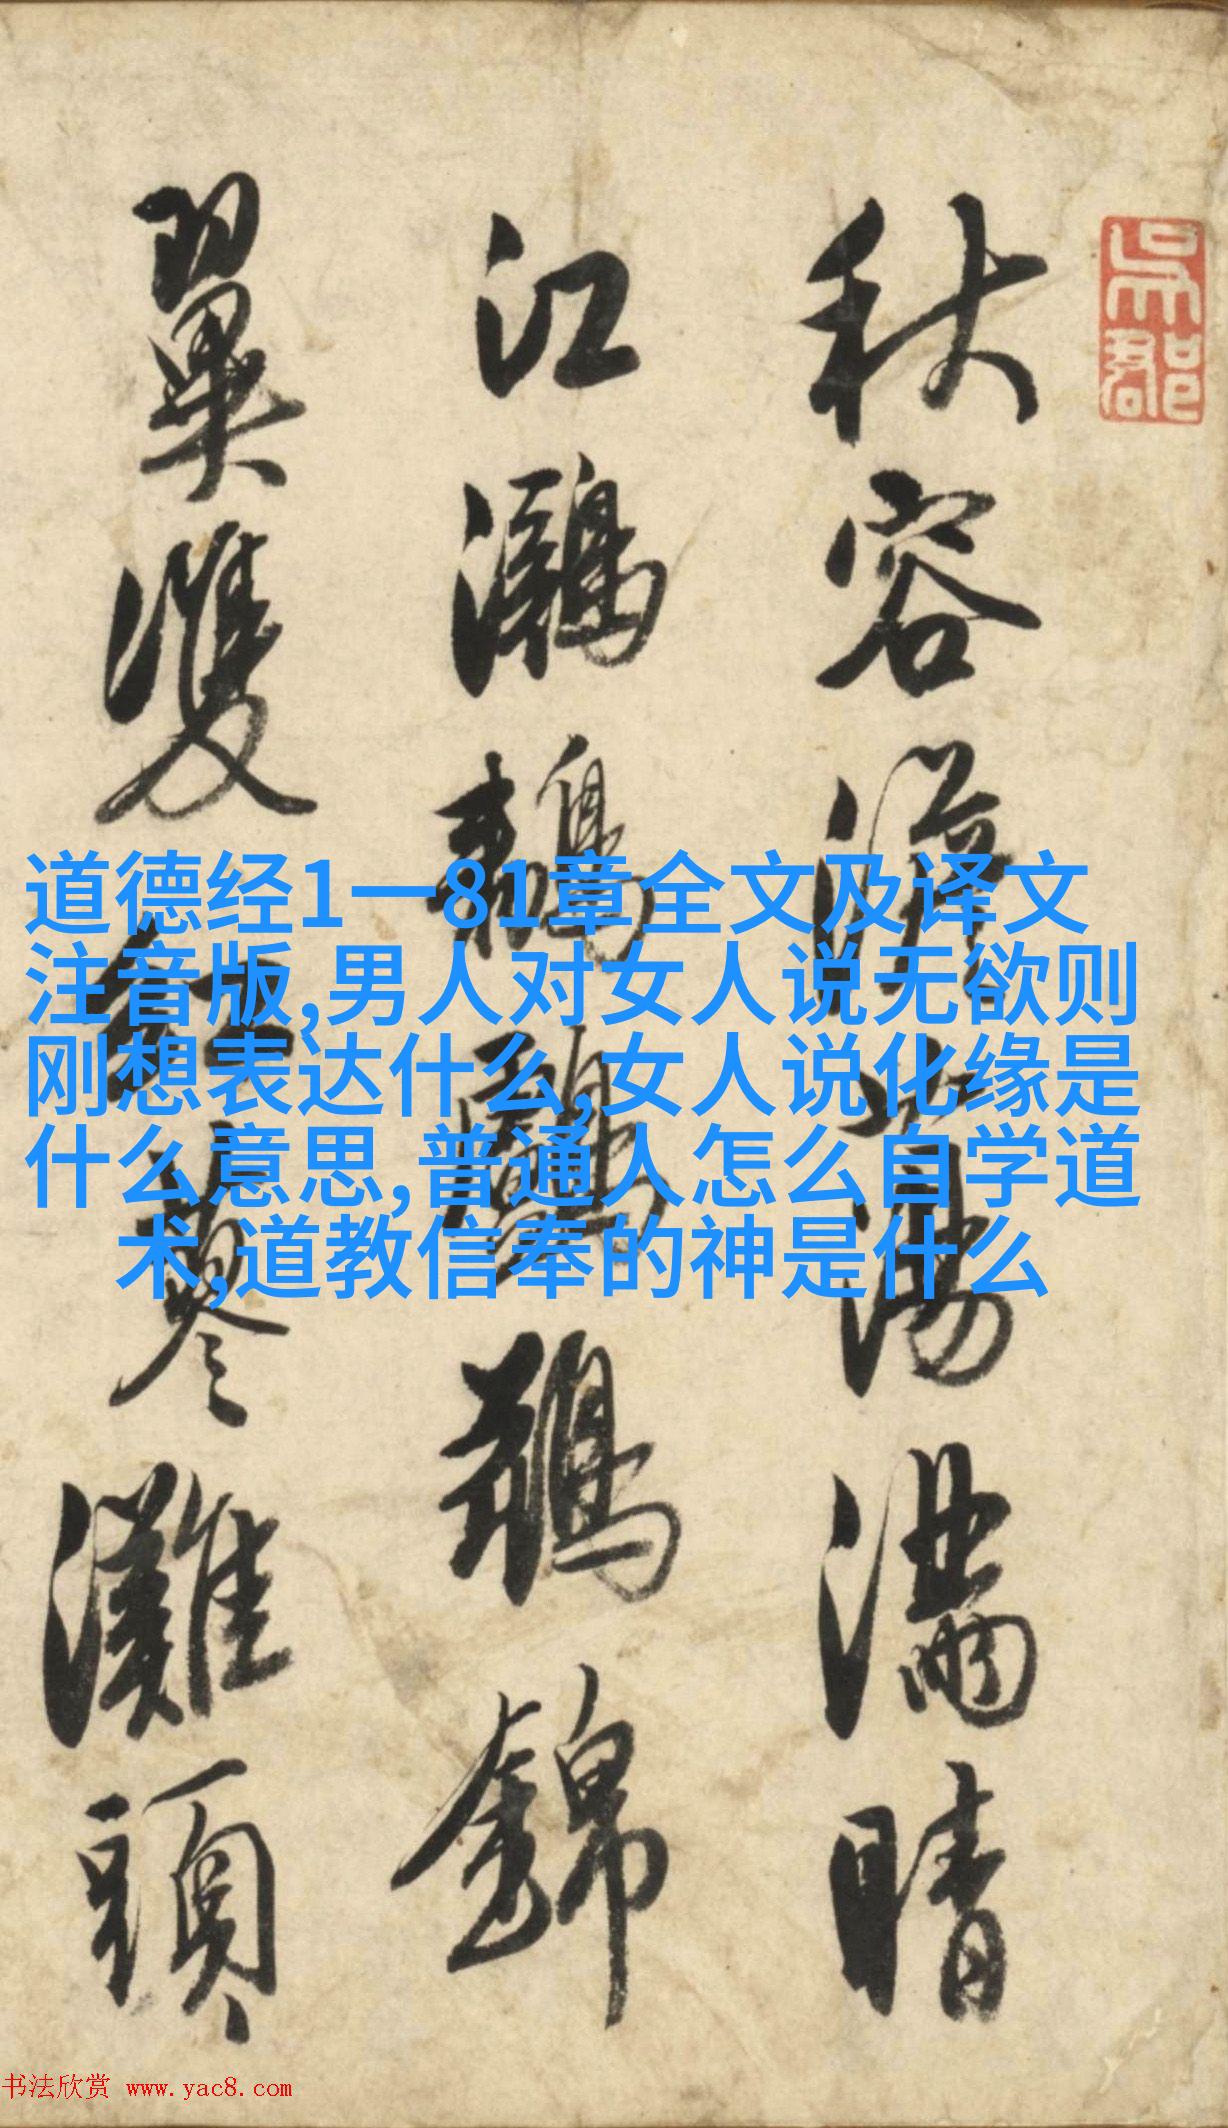 吳郡
秋容澹蕩滿晴
江鸂鶒錦
翼雙紅蓼灘頭
道德经1一81章全文及译文
注音版,男人对女人说无欲则
刚想表达什么,女人说化缘是
什么意思,普通人怎么自学道
术,道教信奉的神是什么
书法欣赏 www.yac8.com